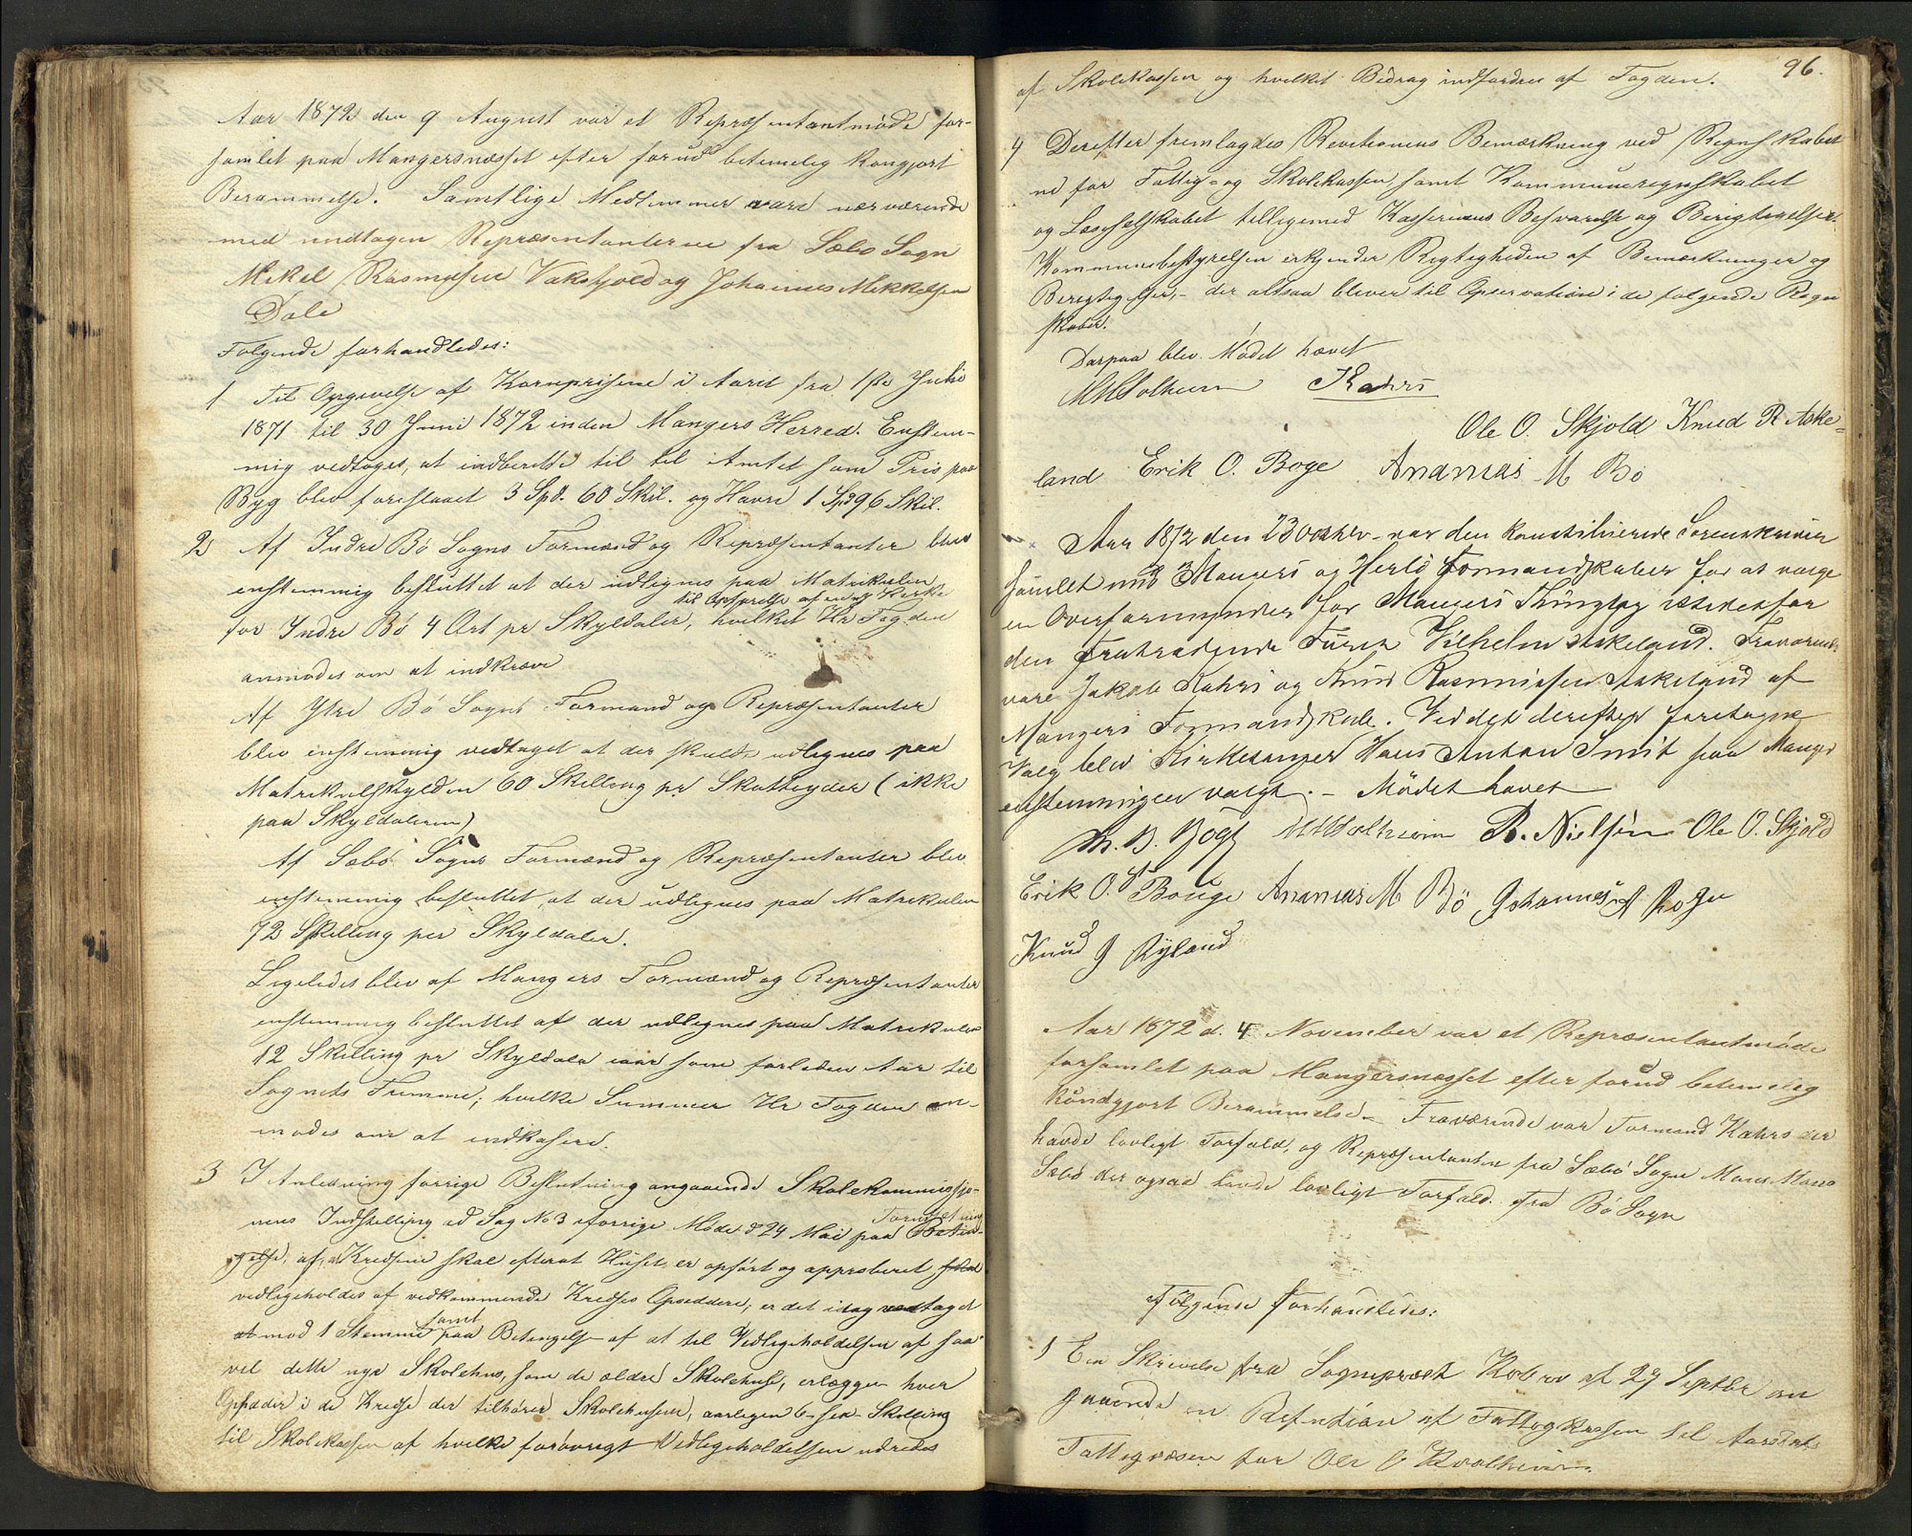 Aar 1872 den 9 August var et Repræsentantmøde for-
samlet paa Mangersnæsset efter forud betimelig kongjort
Berammelse. Samtlige Medlemmer vare nærværende
med undtagen Repræsentanterne fra Sæbo Sogn
Mikel Rasmussen Vakskjold og Johannes Mikkelsen
Dale
Følgende forhandledes:
1 Til Opgivelse af Kornpriserne i Aaret fra 1ste Juli
1871 til 30 Juni 1872 inden Mangers Herred. Enstem-
mig vedtoges, at indberette til til Amtet som Pris paa
Byg blev foreslaaet 3 Spd. 60 Skil. og Havre 1 Spd 96 Skil.
2 Af Indre Bö Sogns Formænd og Repræsentanter blev
enstemmig besluttet at der udlignes paa Matrikulen
til Opførelse af en ny Kirke
for Indre Bö 4 Ort pr Skyldaler, hvilket Hr Fogden
anmodes om at indkræve
Af Ytre Bö Sogns Formænd og Repræsentanter
blev enstemmig vedtaget at der skulde udlignes paa
Matrikulskylden 60 Skilling pr Skatteyder (ikke
paa Skyldaleren)
Af Sæbö Sogns Formænd og Repræsentanter blev
enstemmig besluttet, at der udlignes paa Matrikulen
72 Skilling per Skyldaler.
Ligeledes blev af Mangers Formænd og Repræsentanter
enstemmig besluttet at der udlignes paa Matrikulen
12 Skilling pr Skyldaler iaar som forleden Aar til
Sognets Fromme; hvilke Summer Hr Fogden an-
modes om at indkasere.
3 I Anledning forrige Beslutning angaaende Skolekommissjo-
nens Indstilling ad Sag No 3 i forrige Møde d 24 Mai paa Betin-
gelse, at Kredsene skal efterat Huset er opført og approberet
vedligeholdes af vedkommende Kredses Opsiddere; er det idag vedtaget
samt
at mod 1 Stemme paa Betingelse af at til Vedligeholdelsen af saa-
vel dette nye Skolehus, som de ældre Skolehuse, erlægger hver
Opsidder i de Kredse der tilhører Skolehusene, aarligen 6 – sex – Skilling
til Skolekassen af hvilke forøvrigt Vedligeholdelsen udredes
96.
af Skolekassen og hvilket Bidrag indfordres af Fogden.
4 Derefter fremlagdes Revisionens Bemærkning ved Regnskaber
ne for Fattig- og Skolekassen samt Kommuneregnskabet
og Læseselskabet tilligemed Kassererens Besvarelse og Berigtigelser.
Kommunebestyrelsen erkjender Rigtigheden af Bemærkninger og
Berigtigelser, – der altsaa bliver til Opservation i de følgende Regn
skaber.
Derpaa blev Mødet hævet
M H Solheim Kahrs
Ole O. Skjold Knud R. Aske-
land Erik O. Boge Ananias M Bö
Aar 1872 den 23 Oktbr. var den konstituerede Sorenskriver
samlet med Mangers og Herlö Formandskaber for at vælge
en Overformynder for Mangers Thinglag istedetfor
den fratrædende Furer Vilhelm Askeland. Fraværende
vare Jakob Kahrs og Knud Rasmussen Askeland af
Mangers Formandskab. Ved det derefter foretagne
Valg blev Kirkesanger Hans Anton Smit paa Manger
enstemmigen valgt. – Mødet hævet
M H Solheim R. Nielsen Ole O. Skjold
Erik O. Bouge Ananias M Bö Johannes
Knud J Ryland
Aar 1872 d. 4 November var et Repræsentantmøde
forsamlet paa Mangersnæsset efter forud betimelig
kundgjort Berammelse – Fraværende var Formand Kahrs der
havde lovligt Forfald, og Repræsentanten fra Sæbö Sogn Mons Mons
Sæbö der ogsaa havde lovligt Forfald. fra Bö Sogn
Følgende forhandledes:
1 En Skrivelse fra Sogneprest Kobro af 27 Septbr an
gaaende en Refusion af Fattigkassen til Aarstads
Fattigvæsen for Ole O Kvalheim.